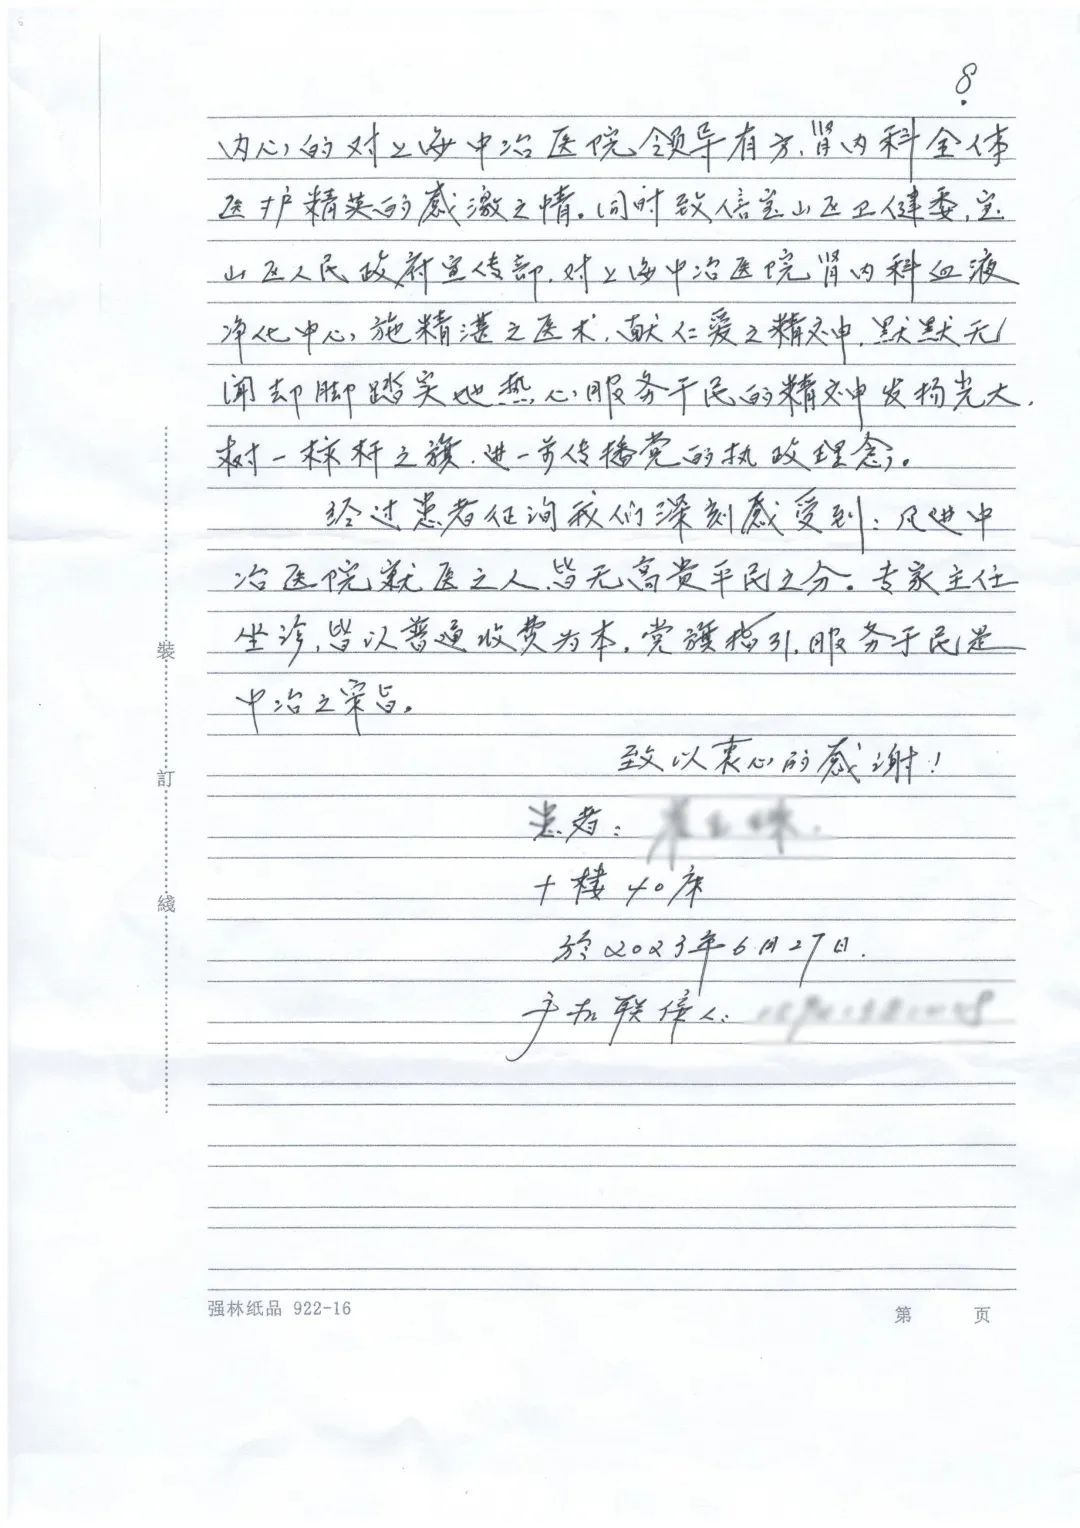 8.
内心的对上海中冶医院领导有方,肾内科全体
医护精英的感激之情。同时致信宝山区卫健委,宝
山区人民政府宣传部,对上海中冶医院肾内科血液
净化中心,施精湛之医术,献仁爱之精神,默默无
闻却脚踏实地热心服务于民的精神发扬光大,
树一标杆之旗,进一步传播党的执政理念。
经过患者征询我们深刻感受到:凡进中
冶医院就医之人,皆无高贵平民之分。专家主任
坐诊,皆以普通收费为本,党旗指引,服务于民是
中冶之宗旨。
致以衷心的感谢!
患者:
十楼40床
於2023年6月27日.
联係人:
裝
訂
綫
强林纸品 922-16
第 页